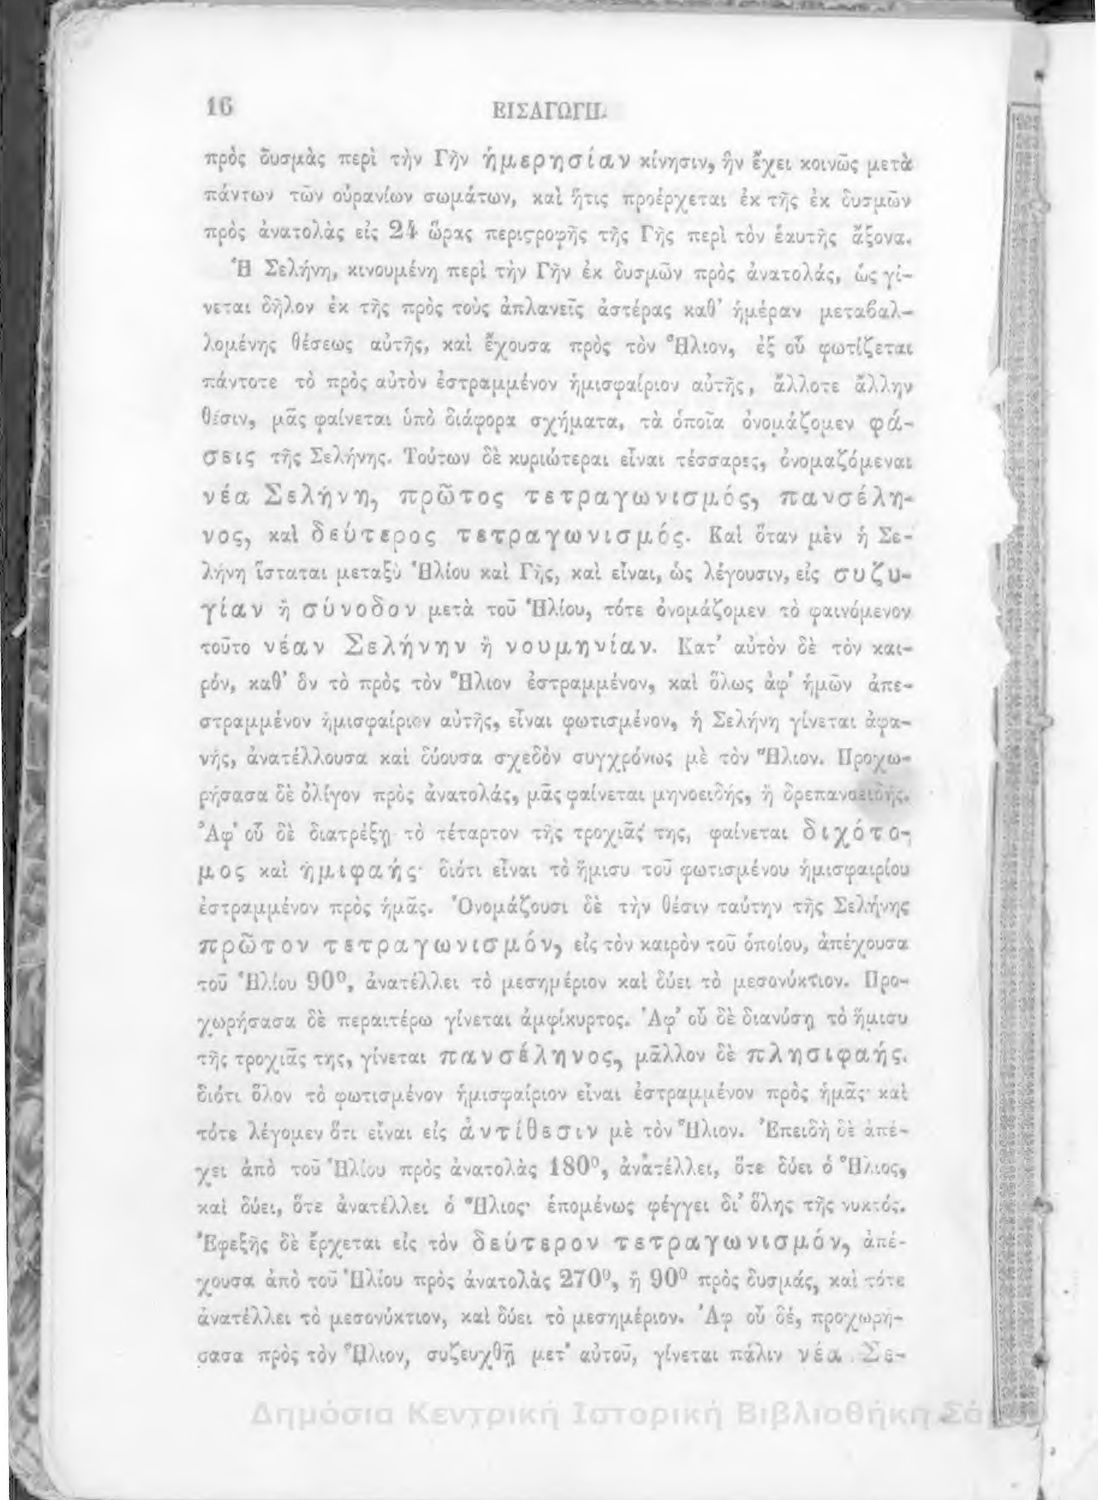 16 ΕΙΣΑΓΩΓΗ.
πρὸς δυσμὰς περὶ τὴν Γῆν ἡμερησίαν κίνησιν, ἣν ἔχει κοινῶς μετὰ
πάντων τῶν οὐρανίων σωμάτων, καὶ ἥτις προέρχεται ἐκ τῆς ἐκ δυσμῶν
πρὸς ἀνατολὰς εἰς 24 ὥρας περιϛροφῆς τῆς Γῆς περὶ τὸν ἑαυτῆς ἄξονα.
Ἡ Σελήνη, κινουμένη περὶ τὴν Γῆν ἐκ δυσμῶν πρὸς ἀνατολάς, ὡς γί-
νεται δῆλον ἐκ τῆς πρὸς τοὺς ἀπλανεῖς ἀστέρας καθ' ἡμέραν μεταβαλ-
λομένης θέσεως αὐτῆς, καὶ ἔχουσα πρὸς τὸν Ἥλιον, ἐξ οὗ φωτίζεται
πάντοτε τὸ πρὸς αὐτὸν ἐστραμμένον ἡμισφαίριον αὐτῆς, ἄλλοτε ἄλλην
θέσιν, μᾶς φαίνεται ὑπὸ διάφορα σχήματα, τὰ ὁποῖα ὀνομάζομεν φά-
σεις τῆς Σελήνης. Τούτων δὲ κυριώτεραι εἶναι τέσσαρες, ὀνομαζόμεναι
νέα Σελήνη, πρῶτος τετραγωνισμός, πανσέλη-
νος, καὶ δεύτερος τετραγωνισμός. Καὶ ὅταν μὲν ἡ Σε-
λήνη ἵσταται μεταξὺ Ἡλίου καὶ Γῆς, καὶ εἶναι, ὡς λέγουσιν, εἰς συζυ-
γίαν ἢ σύνοδον μετὰ τοῦ Ἡλίου, τότε ὀνομάζομεν τὸ φαινόμενον
τοῦτο νέαν Σελήνην ἢ νουμηνίαν. Κατ' αὐτὸν δὲ τὸν και-
ρόν, καθ' ὃν τὸ πρὸς τὸν Ἥλιον ἐστραμμένον, καὶ ὅλως ἀφ' ἡμῶν ἀπε-
στραμμένον ἡμισφαίριον αὐτῆς, εἶναι φωτισμένον, ἡ Σελήνη γίνεται ἀφα-
νής, ἀνατέλλουσα καὶ δύουσα σχεδὸν συγχρόνως μὲ τὸν Ἥλιον. Προχω-
ρήσασα δὲ ὀλίγον πρὸς ἀνατολάς, μᾶς φαίνεται μηνοειδής, ἢ δρεπανοειδής.
Ἀφ' οὗ δὲ διατρέξῃ τὸ τέταρτον τῆς τροχιᾶς της, φαίνεται διχότο-
μος καὶ ἡμιφαής· διότι εἶναι τὸ ἥμισυ τοῦ φωτισμένου ἡμισφαιρίου
ἐστραμμένον πρὸς ἡμᾶς. Ὀνομάζουσι δὲ τὴν θέσιν ταύτην τῆς Σελήνης
πρῶτον τετραγωνισμόν, εἰς τὸν καιρὸν τοῦ ὁποίου, ἀπέχουσα
τοῦ Ἡλίου 90⁰, ἀνατέλλει τὸ μεσημέριον καὶ δύει τὸ μεσονύκτιον. Προ-
χωρήσασα δὲ περαιτέρω γίνεται ἀμφίκυρτος. Ἀφ' οὗ δὲ διανύσῃ τὸ ἥμισυ
τῆς τροχιᾶς της, γίνεται πανσέληνος, μᾶλλον δὲ πλησιφαής,
διότι ὅλον τὸ φωτισμένον ἡμισφαίριον εἶναι ἐστραμμένον πρὸς ἡμᾶς· καὶ
τότε λέγομεν ὅτι εἶναι εἰς ἀντίθεσιν μὲ τὸν Ἥλιον. Ἐπειδὴ δὲ ἀπέ-
χει ἀπὸ τοῦ Ἡλίου πρὸς ἀνατολὰς 180⁰, ἀνατέλλει, ὅτε δύει ὁ Ἥλιος,
καὶ δύει, ὅτε ἀνατέλλει ὁ Ἥλιος· ἑπομένως φέγγει δι' ὅλης τῆς νυκτός.
Ἐφεξῆς δὲ ἔρχεται εἰς τὸν δεύτερον τετραγωνισμόν, ἀπέ-
χουσα ἀπὸ τοῦ Ἡλίου πρὸς ἀνατολὰς 270⁰, ἢ 90⁰ πρὸς δυσμάς, καὶ τότε
ἀνατέλλει τὸ μεσονύκτιον, καὶ δύει τὸ μεσημέριον. Ἀφ οὗ δέ, προχωρή-
σασα πρὸς τὸν Ἥλιον, συζευχθῇ μετ' αὐτοῦ, γίνεται πάλιν νέα Σε-
Δημόσια Κεντρική Ιστορική Βιβλιοθήκη